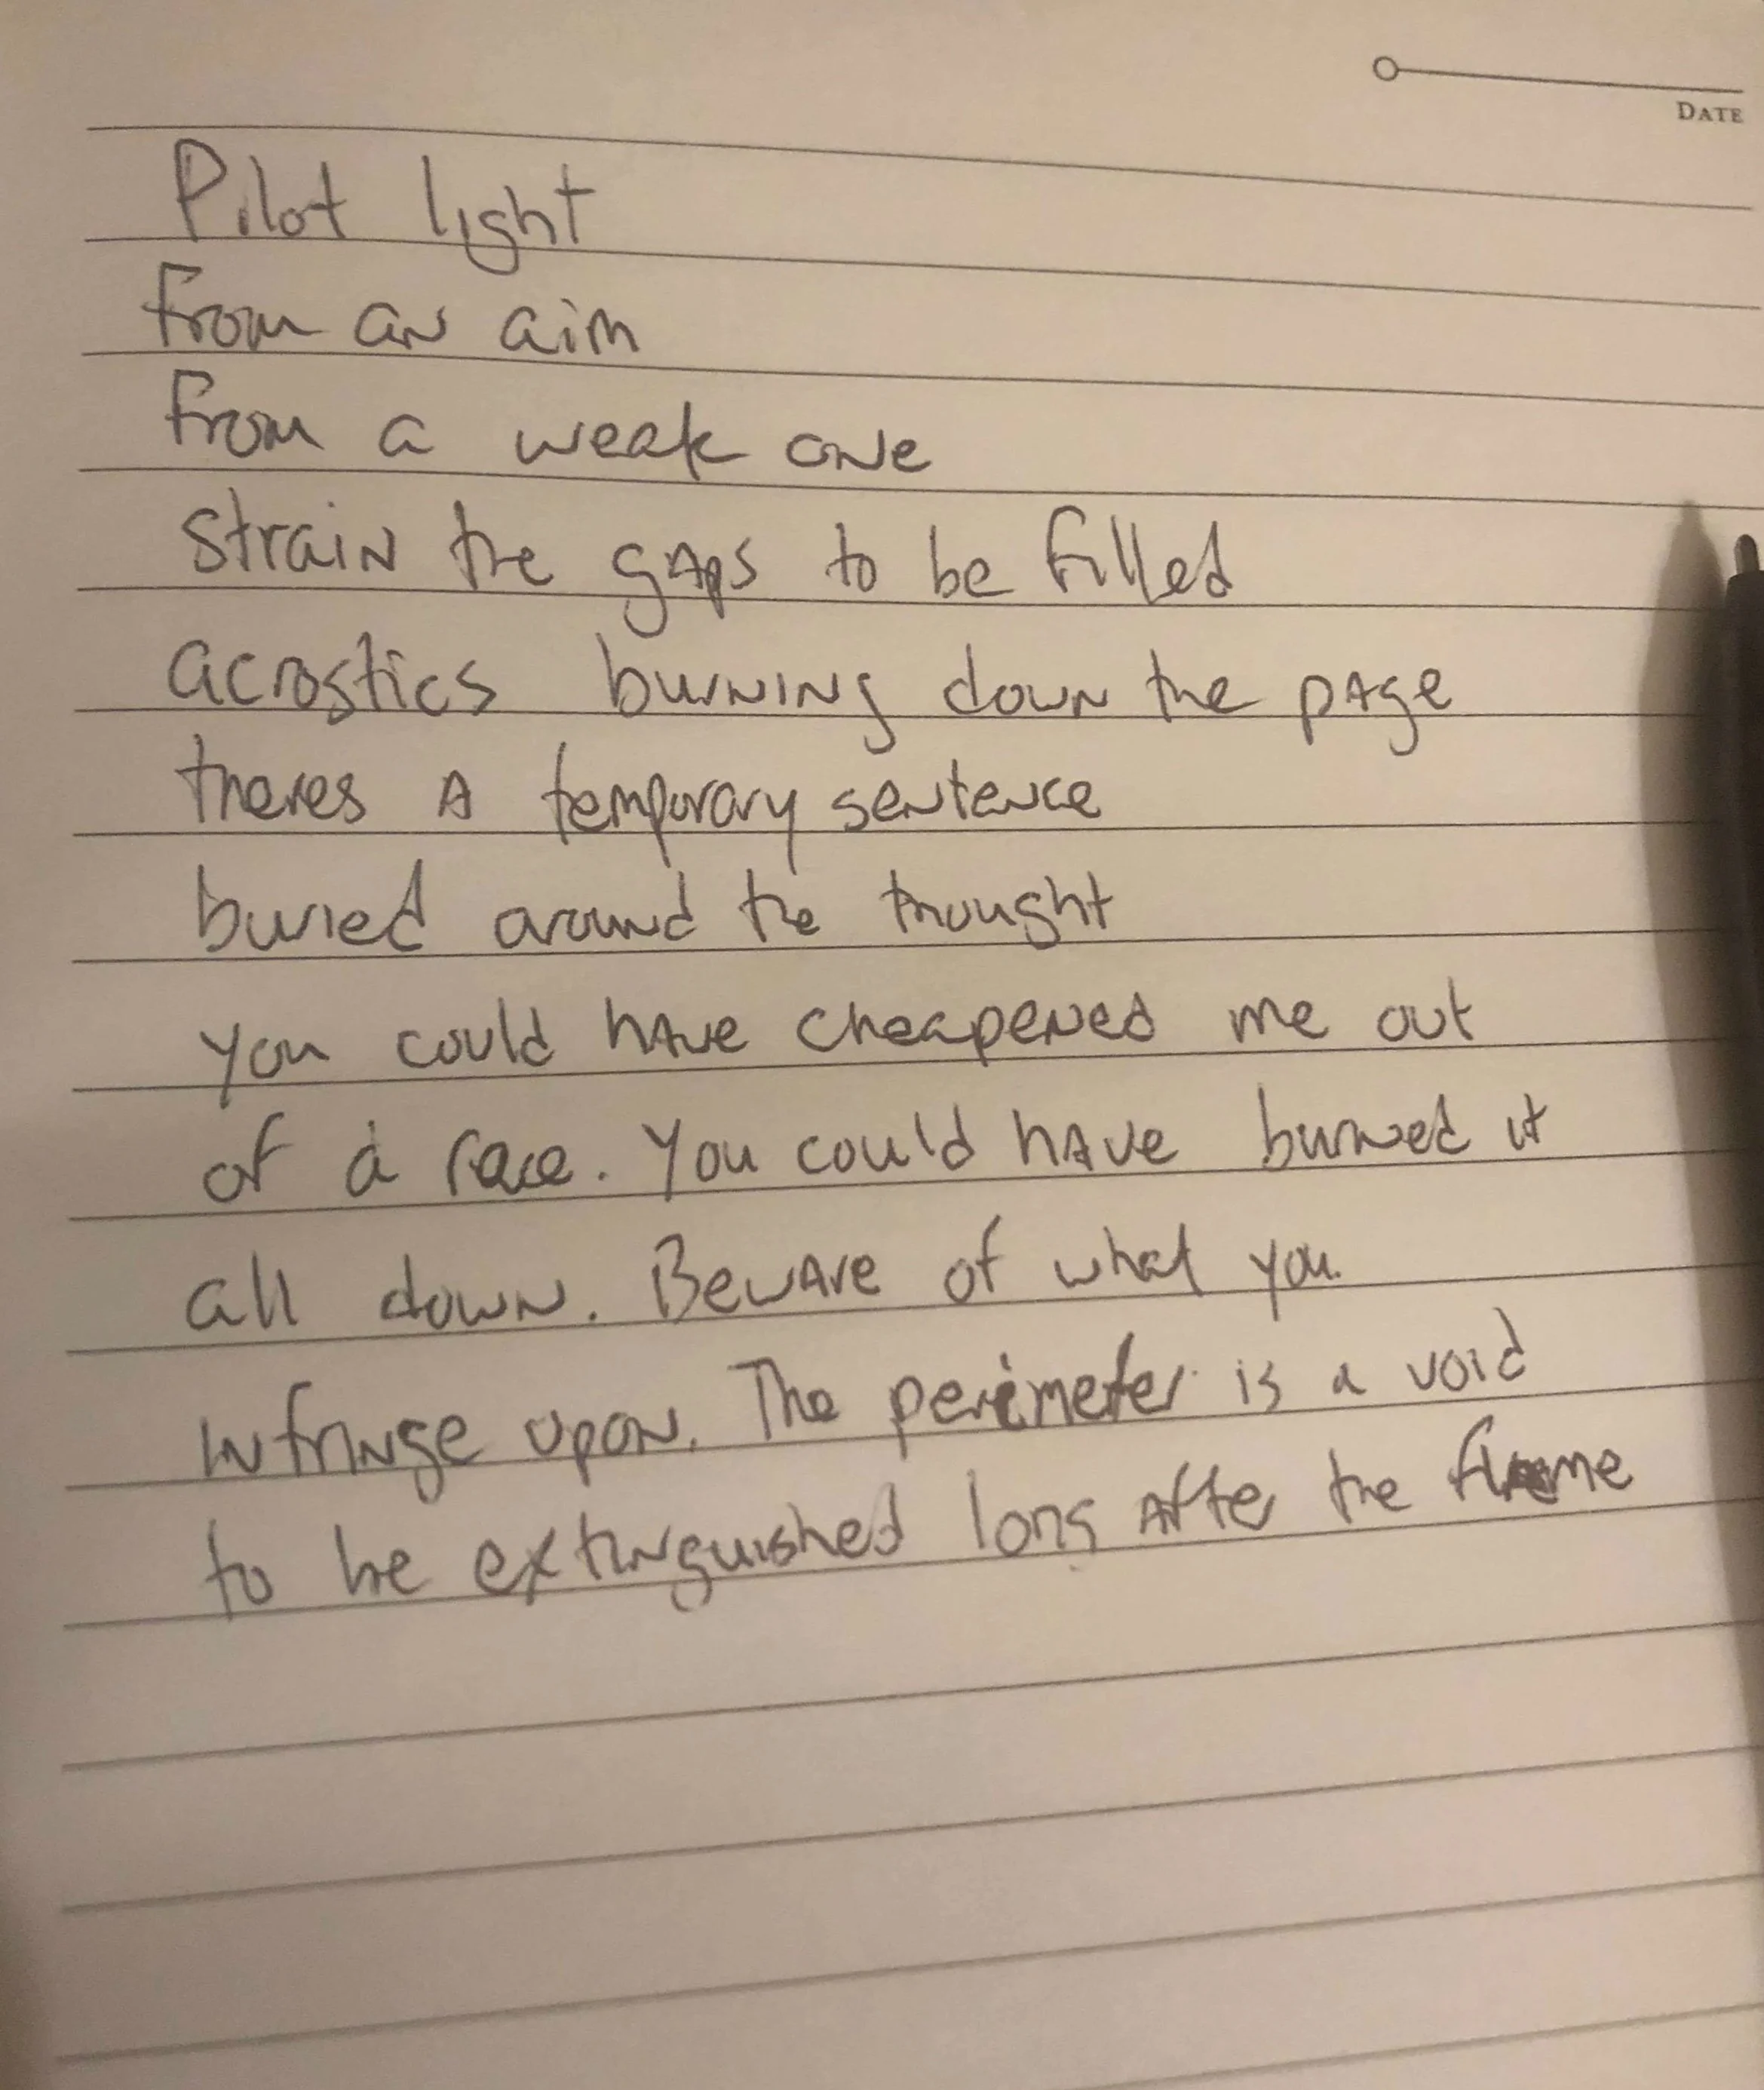 DATE
Pilot light
from an aim
from a weak one
strain the gaps to be filled
acrostics burning down the page
theres a temporary sentence
buried around the thought
you could have cheapened me out
of a race. You could have burned it
all down. Beware of what you
infringe upon. The perimeter is a void
to be extinguished long after the flame